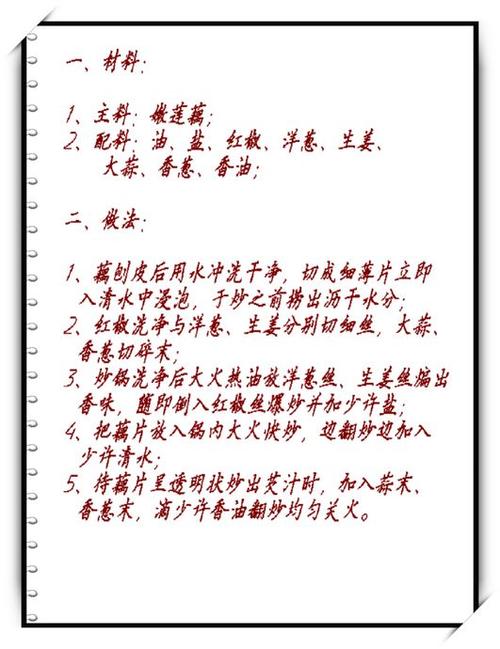 一、材料：
1、主料：嫩莲藕；
2、配料：油、盐、红椒、洋葱、生姜、
大蒜、香葱、香油；
二、做法：
1、藕刨皮后用水冲洗干净，切成细薄片立即
入清水中浸泡，于炒之前捞出沥干水分；
2、红椒洗净与洋葱、生姜分别切细丝，大蒜、
香葱切碎末；
3、炒锅洗净后大火热油放洋葱丝、生姜丝煸出
香味，随即倒入红椒丝爆炒并加少许盐；
4、把藕片放入锅内大火快炒，边翻炒边加入
少许清水；
5、待藕片呈透明状炒出芡汁时，加入蒜末、
香葱末，滴少许香油翻炒均匀关火。